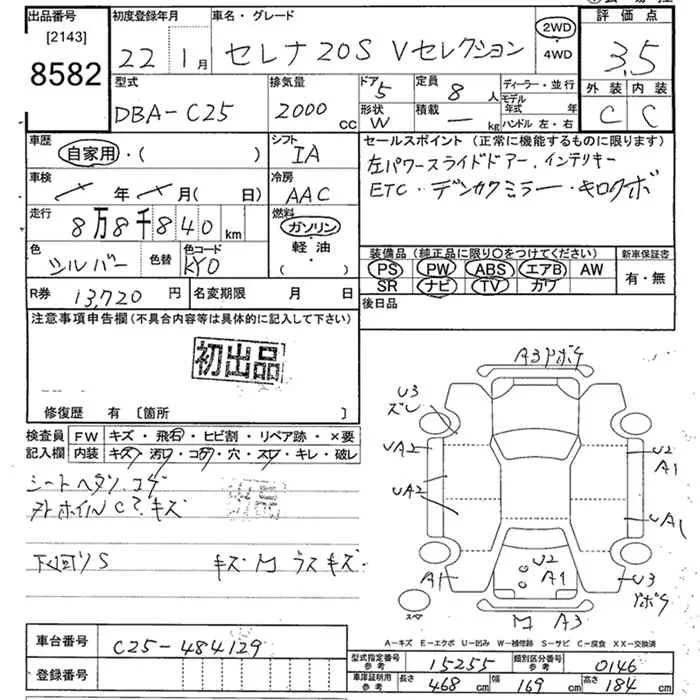 出品番号
[2143]
8582
初度登録年月
22年1月
車名・グレード
セレナ 20S Vセレクション
2WD
・
4WD
評価点
3.5
外装 内装
C C
型式
DBA-C25
排気量
2000 cc
ドア
5
形状
W
定員
8 人
積載
ー kg
ディーラー・並行
モデル年式 年
ハンドル 左・右
車歴
自家用・( )
シフト
IA
車検
年 月( 日)
冷房
AAC
走行
8万8千840 km
燃料
ガソリン
・
軽油
( ・ )
色
シルバー
色替
色コード
KY0
セールスポイント(正常に機能するものに限ります)
左パワースライドドアー、インテリキー
ETC・デンカクミラー・キロクボ
装備品(純正品に限り○をつけてください)
PS PW ABS エアB AW
SR ナビ TV カワ
新車保証書
有・無
R券 13,720 円
名変期限 月 日
後日品
注意事項申告欄(不具合内容等は具体的に記入して下さい)
初出品
修復歴 有 [箇所 ]
検査員記入欄
FW キズ・飛石・ヒビ割・リペア跡・×要
内装 キズ・汚れ・コゲ・穴・スレ・キレ・破レ
シートヘタリ、コゲ
ヌトホイルC?、キズ
下回りS キズM ラスキズ
A3 ドボケ
U3
ズレ
UA2
UA2
U2
A1
UA1
A1
U2
A1
U3
ドボケ
スペア
M A3
A-キズ E-エクボ U-凹み W-補修跡 S-サビ C-腐食 XX-交換済
車台番号 C25-484129
登録番号
型式指定番号 参考 15255
類別区分番号 参考 0146
車庫証明用 参考
長さ 468 cm 幅 169 cm 高さ 184 cm